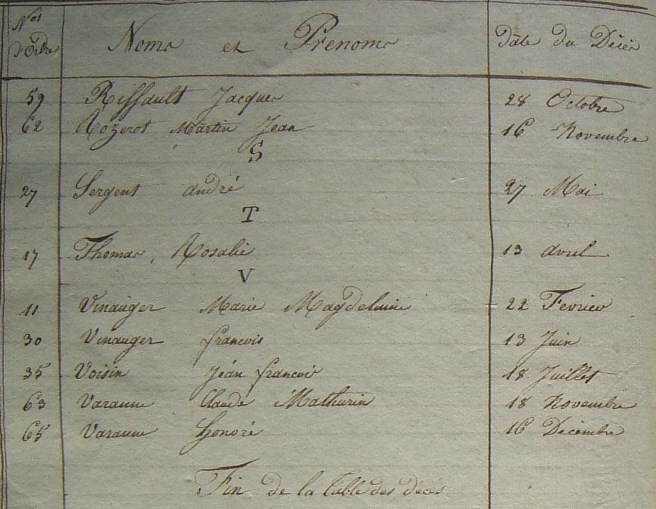 Nos d'ordre Noms et Prénoms date du Décès
59 Riffault Jacques 28 Octobre
62 Rozerot Martin Jean 16 Novembre
S
27 Sergent andré 27 Mai
T
17 Thomas, Rosalie 13 avril
V
11 Vinauger Marie Magdelaine 22 Fevrier
30 Vinauger francois 13 Juin
35 Voisin Jean francois 18 Juillet
63 Varanne Claude Mathurin 18 Novembre
65 Varanne honoré 16 Décembre
Fin de la table des décès